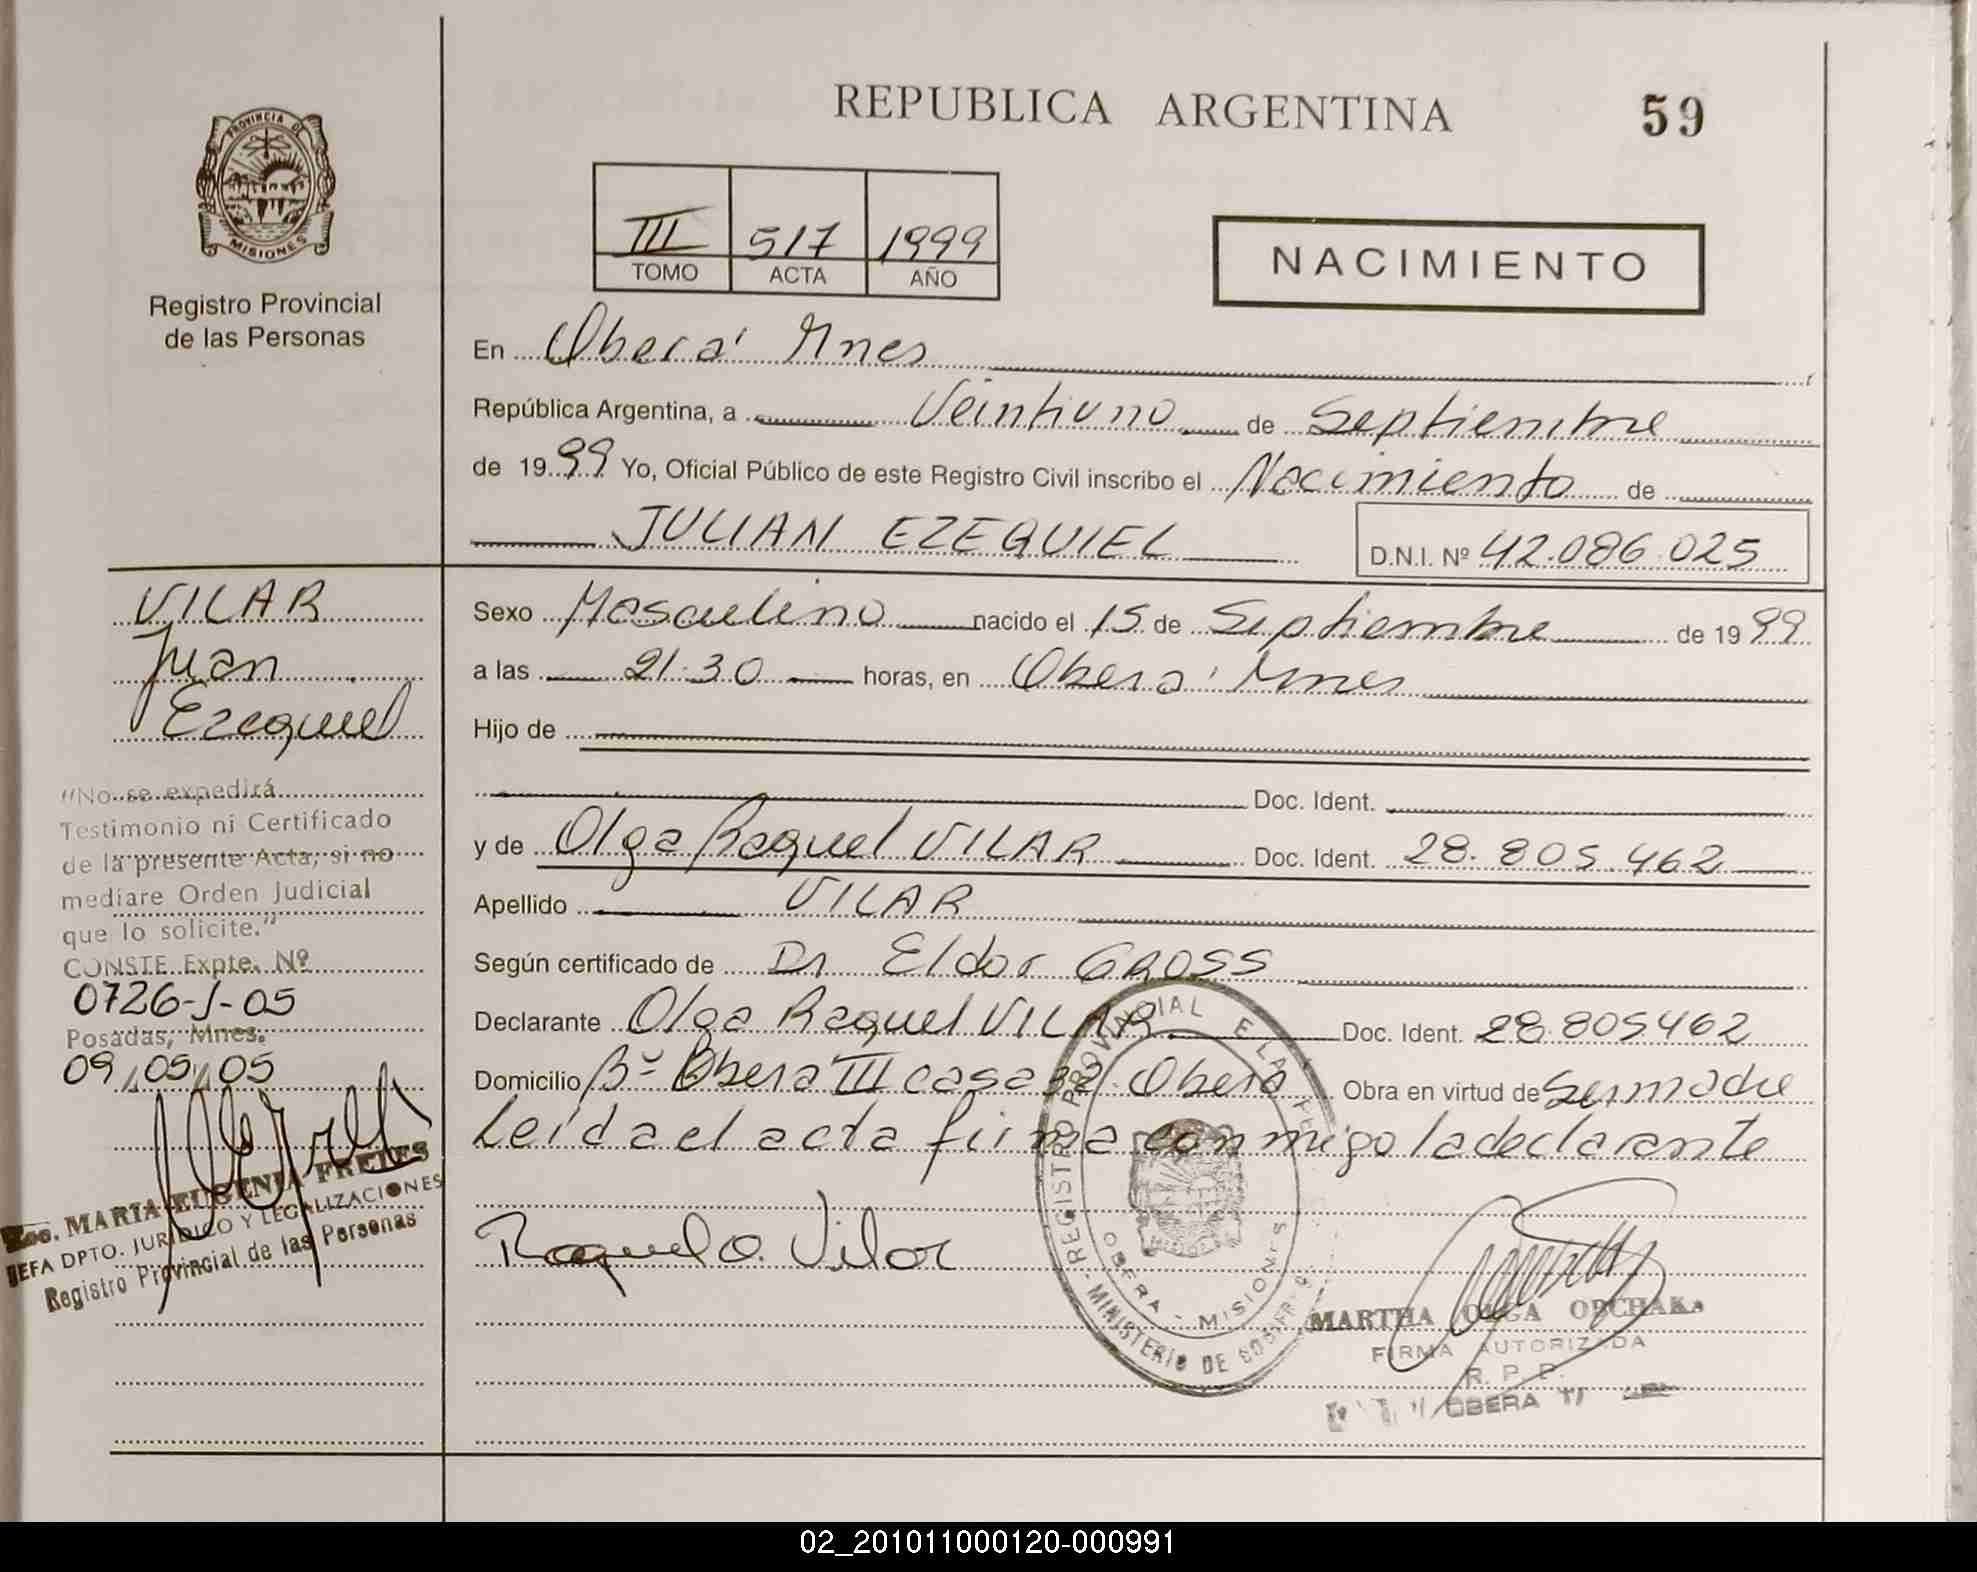 REPUBLICA ARGENTINA
59
PROVINCIA DE
MISIONES
Registro Provincial
de las Personas
III 517 1999
TOMO ACTA AÑO
NACIMIENTO
En Oberá Mnes
República Argentina, a Veintiuno de Septiembre
de 1999 Yo, Oficial Público de este Registro Civil inscribo el Nacimiento de
JULIAN EZEQUIEL D.N.I. Nº 42.086.025
VILAR
Juan
Ezequiel
"No se expedirá
Testimonio ni Certificado
de la presente Acta, si no
mediare Orden Judicial
que lo solicite."
CONSTE Expte. Nº
0726-J-05
Posadas, Mnes.
09,05,05
MARIA EUGENIA FRETES
JEFA DPTO. JURIDICO Y LEGALIZACIONES
Registro Provincial de las Personas
Sexo Masculino nacido el 15 de Septiembre de 1999
a las 21.30 horas, en Oberá Mnes
Hijo de
Doc. Ident.
y de Olga Raquel VILAR Doc. Ident. 28.805.462
Apellido VILAR
Según certificado de Dr Eldor GROSS
Declarante Olga Raquel VILAR Doc. Ident. 28.805462
Domicilio Bº Obera III casa 32. Obera Obra en virtud de Ser madre
Leida el acta firma conmigo la declarante
Raquel O. Vilar
REGISTRO PROVINCIAL
OBERA - MISIONES
MINISTERIO DE
MARTHA OLGA
FIRMA AUTORIZADA
R. P. P.
OBERA
02_201011000120-000991